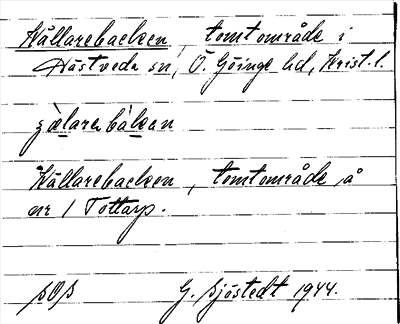 Källarebacken, tomtområde i
Hästveda sn, Ö. Göinge hd, Krist. l.
Källarebacken, tomtområde å
nr 1 Tottarp.
G. Sjöstedt 1944.